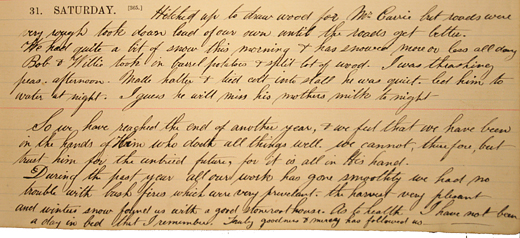 31. SATURDAY. [365.] Hitched up to draw wood for Mr Carrie but roads were
very rough took down load of our own until the roads get better.
We had quite a bit of snow this morning & has snowed more or less all day
Bob & Willie took in barrel potatoes & split lot of wood. I was thrashing
peas. afternoon. Made halter & tied colt in stall he was quiet. led him to
water at night. I guess he will miss his mothers milk to night
So we have reached the end of another year, & we feel that we have been
in the hands of Him who doeth all things well. We cannot, therefore, but
trust him for the untried future, for it is all in His hand.
During the past year all our work has gone smoothly we had no
trouble with bush fires which were very prevalent. the harvest very pleasant
and winters snow found us with a good stone root house. As to health I have not been
a day in bed that I remember. Truly goodness & mercy has followed us.